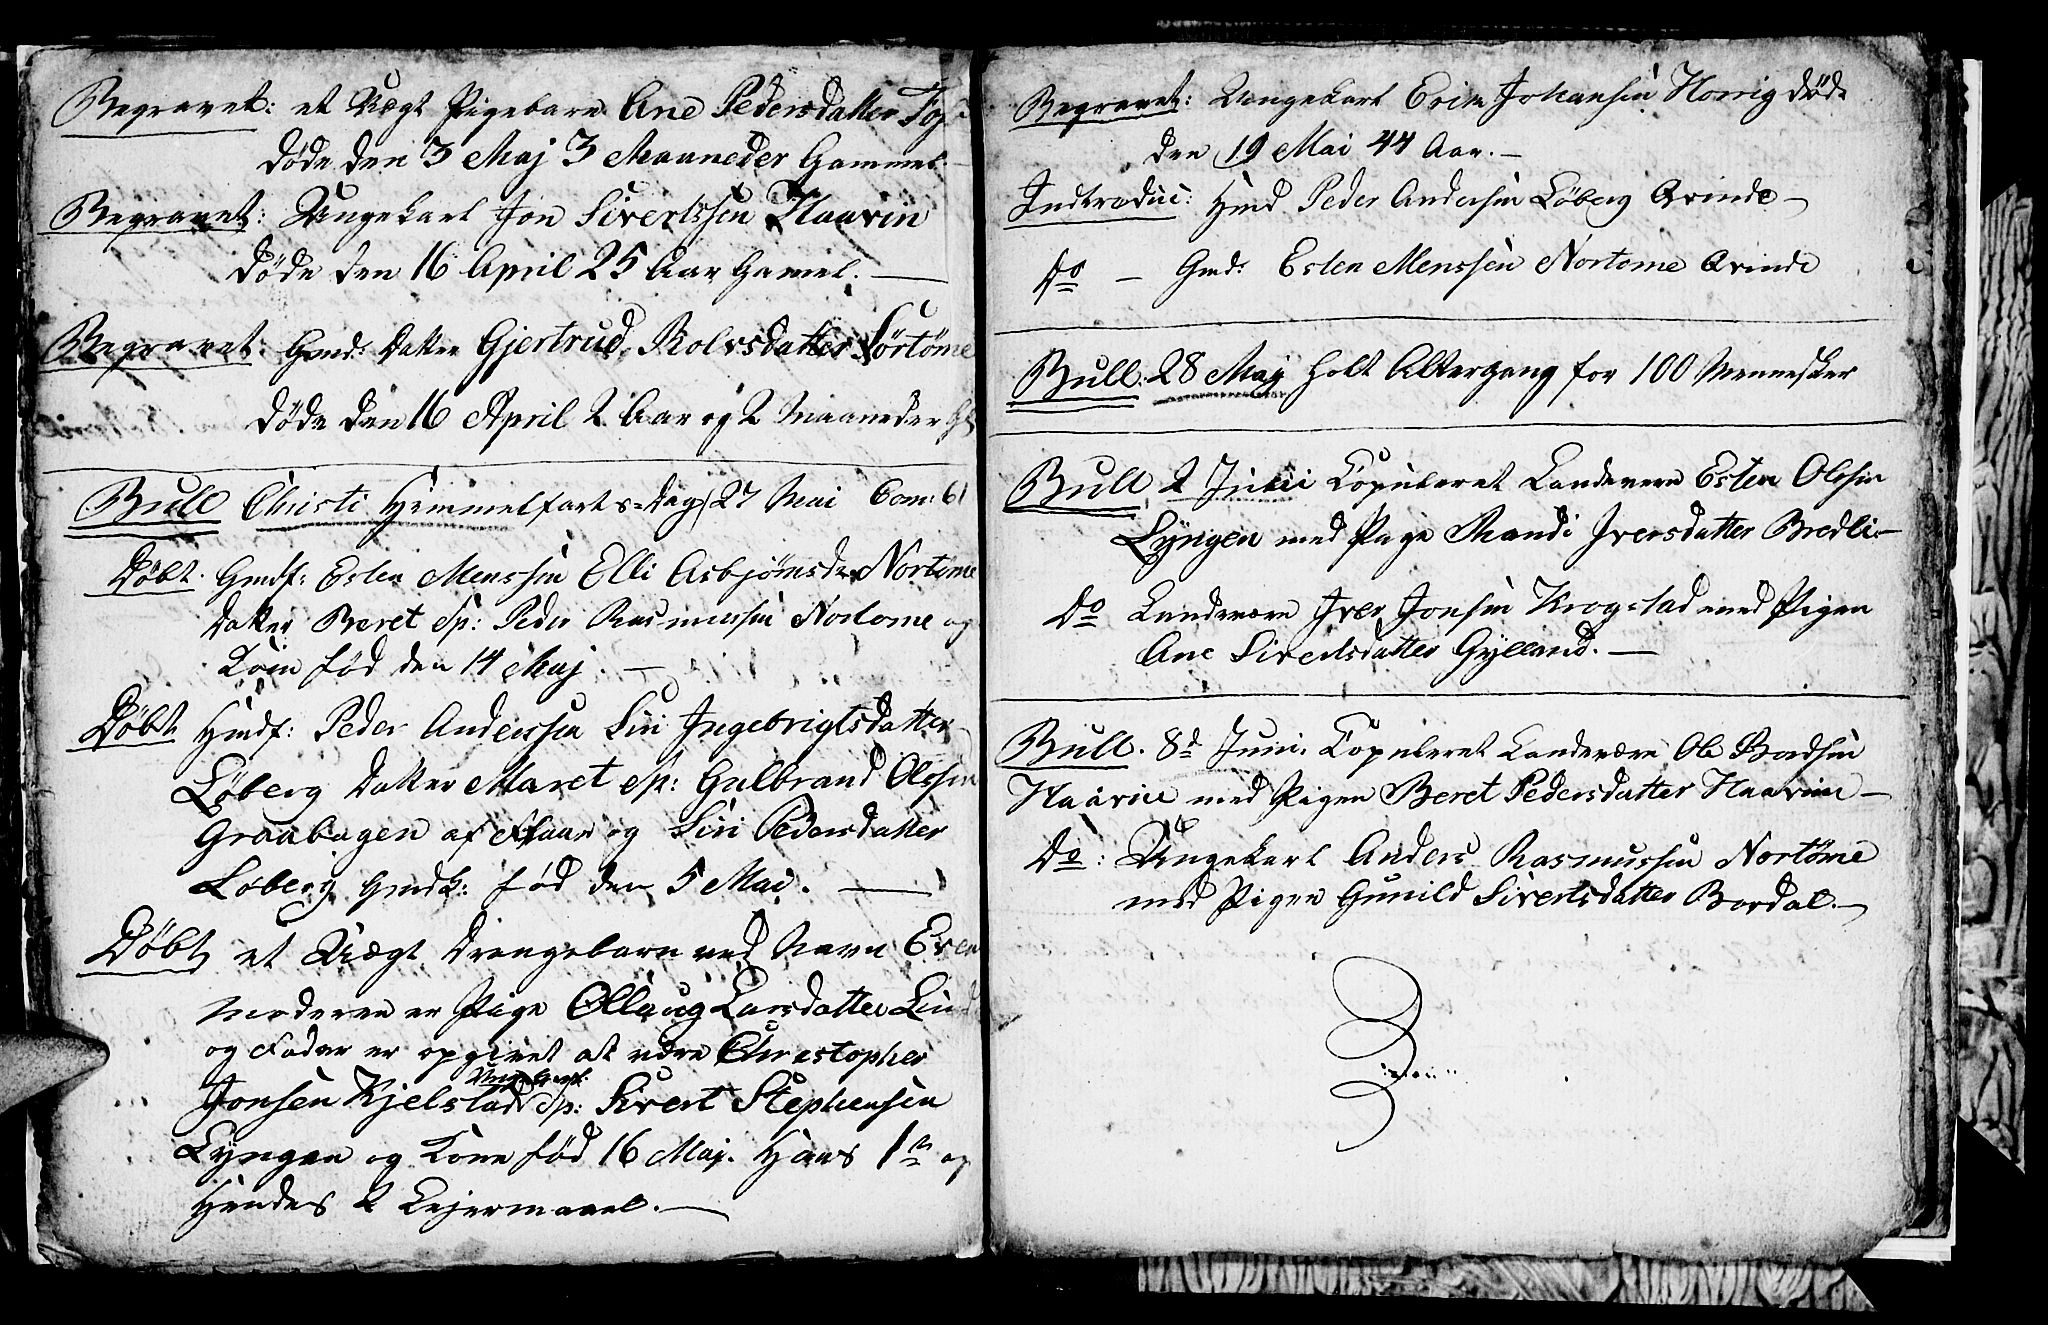 Begravet: et Uægt Pigebarn Ane Pedersdatter
døde den 3 Maj 3 Maaneder Gammel
Begravet: Ungekarl Jon Sivertssen Haavin
døde den 16 April 25 Aar Gamel. —
Begravet: Gmd: Datter Gjertrud Rolvsdatter Sørtøme
døde den 16 April 2 Aar og 2 Maaneder
Bull Christi Hemmelfarts=Dag 27 Mai Com: 61
Døbt. Gmdf: Esten Menssen Elli Asbjørnsd: Nortøme
Datter Beret Sp: Peder Rasmussen Nortome og
Kone fød den 14 Maj. —
Døbt Hmdf: Peder Anderssen Siri Ingebrigtsdatter
Løberg Datter Maret Sp: Gulbrand Olssen
Graabagen af Flaae og Siri Pedersdatter
Løberg Gmdk: fød den 5 Mai. —
Døbt et Uægt Drengebarn ved Navn
Moderen er Pige Ollaug Larsdatter
og Fader er opgivet at være Christopher
Ungekarl:
Jonsen Kjelstad Sp: Sivert Stephensen
Lyngen og Kone fød 16 Maj. Hans 1te og
Hendes 2 Lejermaael. —
Begravet: Ungekarl Erik Johansen Horrig døde
den 19 Mai 44 Aar. —
Indtroduc: Hmd Peder Andersen Løberg Qvinde —
Do — Gmd: Esten Menssen Nortome Qvinde
Bull: 28 Maj holt Altergang for 100 Mennesker
Bull 2 Junii Copuleret Landevern Esten Olssen
Lyngen med Pige Randi Iversdatter Bredli —
Do Landevern Iver Jonsen Krogstad med Pigen
Ane Sivertsdatter Gylland. —
Bull. 8d Juni Copuleret Landeværn Ole Bordsen
Haavin med Pigen Beret Pedersdatter Haavin —
Do: Ungekarl Anders Rasmussen Nortøme
med Pigen Gunild Sivertsdatter Bordal. —